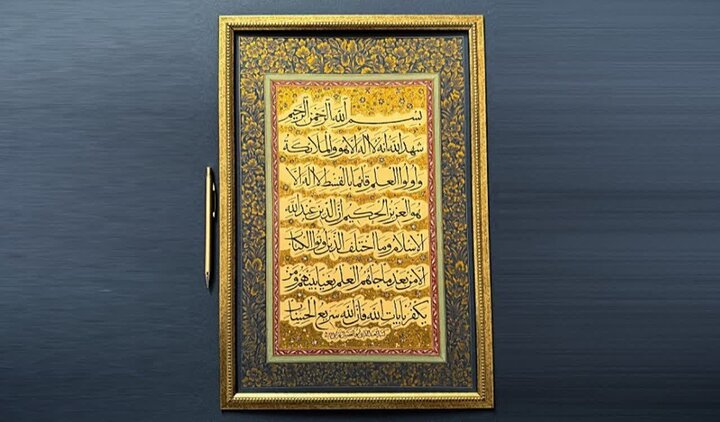 بسم الله الرحمن الرحيم
شهد الله انه لا اله الا هو والملائكة
واولوا العلم قائما بالقسط لا اله الا
هو العزيز الحكيم ان الدين عند الله
الاسلام وما اختلف الذين اوتوا الكتاب
الا من بعد ما جائهم العلم بغيا بينهم ومن
يكفر بايات الله فان الله سريع الحساب